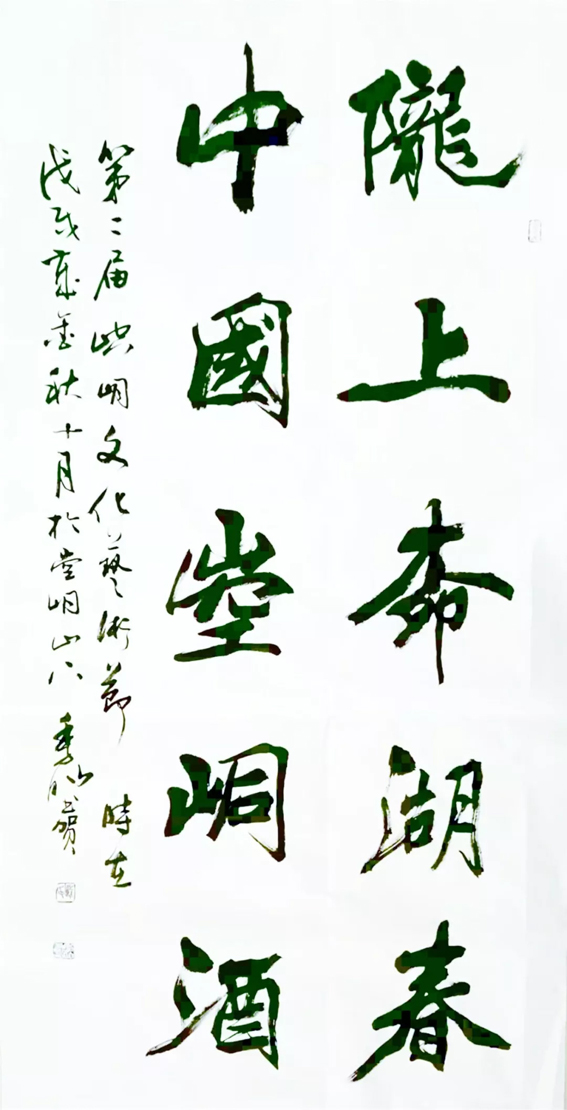 隴上柳湖春
中國崆峒酒
第二届崆峒文化藝術節 時在
戊戌歲金秋十月於崆峒山下